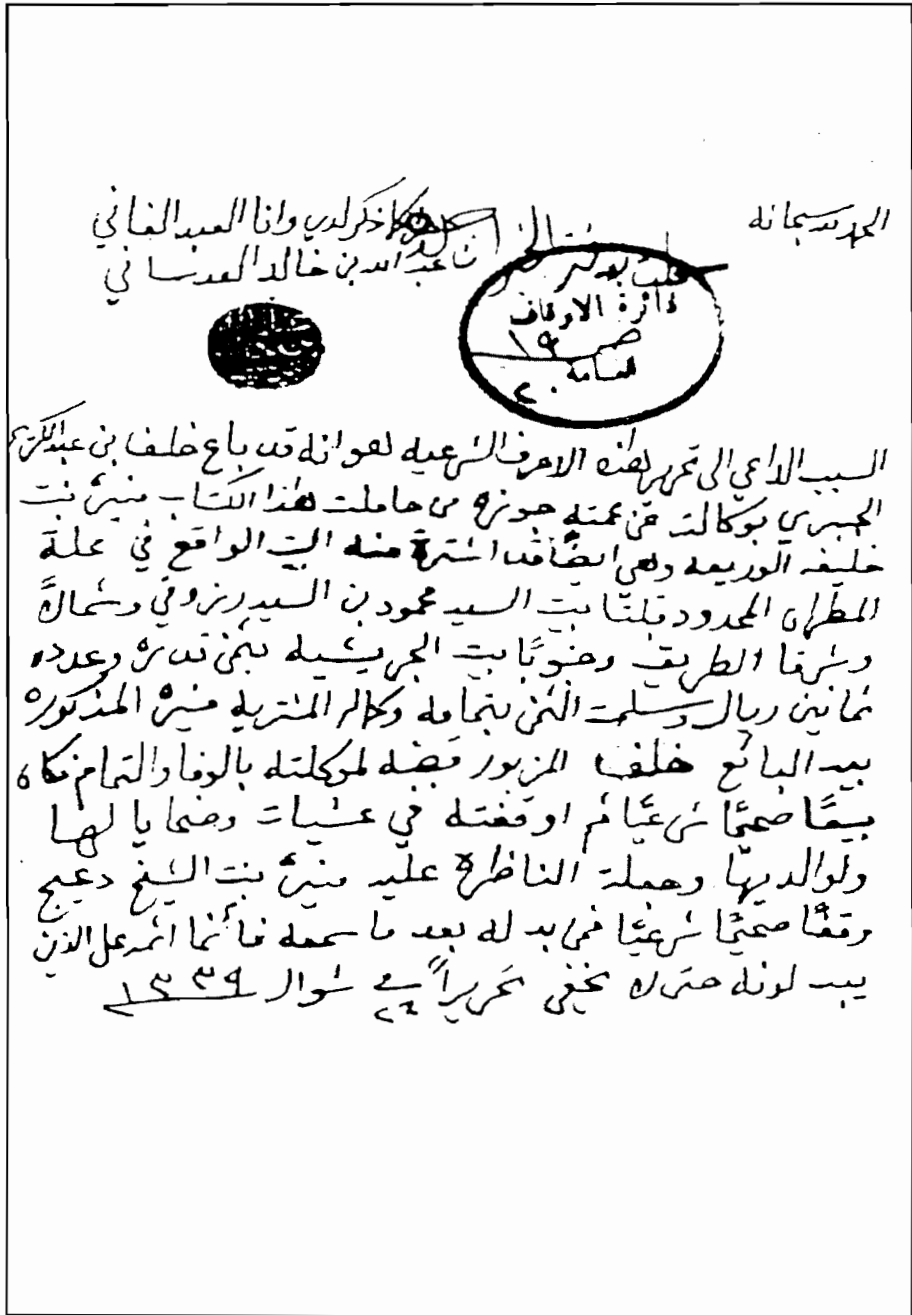 الحمد لله سبحانه
كما ذكر لدي وانا العبد الفاني
عبد الله بن خالد العدساني
دائرة الاوقاف
العامة
السبب الداعي الى تحرير هذه الاحرف الشرعيه لهو انه قد باع خلف بن عبد الكريم
الجبري بوكالته عن عمته جوزه من حاملت هذا الكتاب منيره بنت
خليفه الوريعه وهي ايضًا قد اشترة منه البيت الواقع في محلة
المطران المحدود قبلتا بيت السيد محمود بن السيد رزوقي وشمالاً
وشرقا الطريق وجنوبًا بيت الجريشيه بثمن قدره وعدده
ثمانين ريال وسلمت الثمن بتمامه وكماله المشتريه منيره المذكوره
بيد البائع خلف المزبور قبضه لموكلته بالوفا والتمام فكان
بيعًا صحيحًا شرعيًا ثم اوقفته في عشيات وضحايا لها
ولوالديها وجعلة الناظرة عليه منيرة بنت الشيخ دعيج
وقفًا صحيحًا شرعيًا فمن بدله بعد ما سمعه فأنما اثمه على الذين
يبدلونه حتى لا يخفى تحريراً في ٢٤ شوال ١٣٣٩